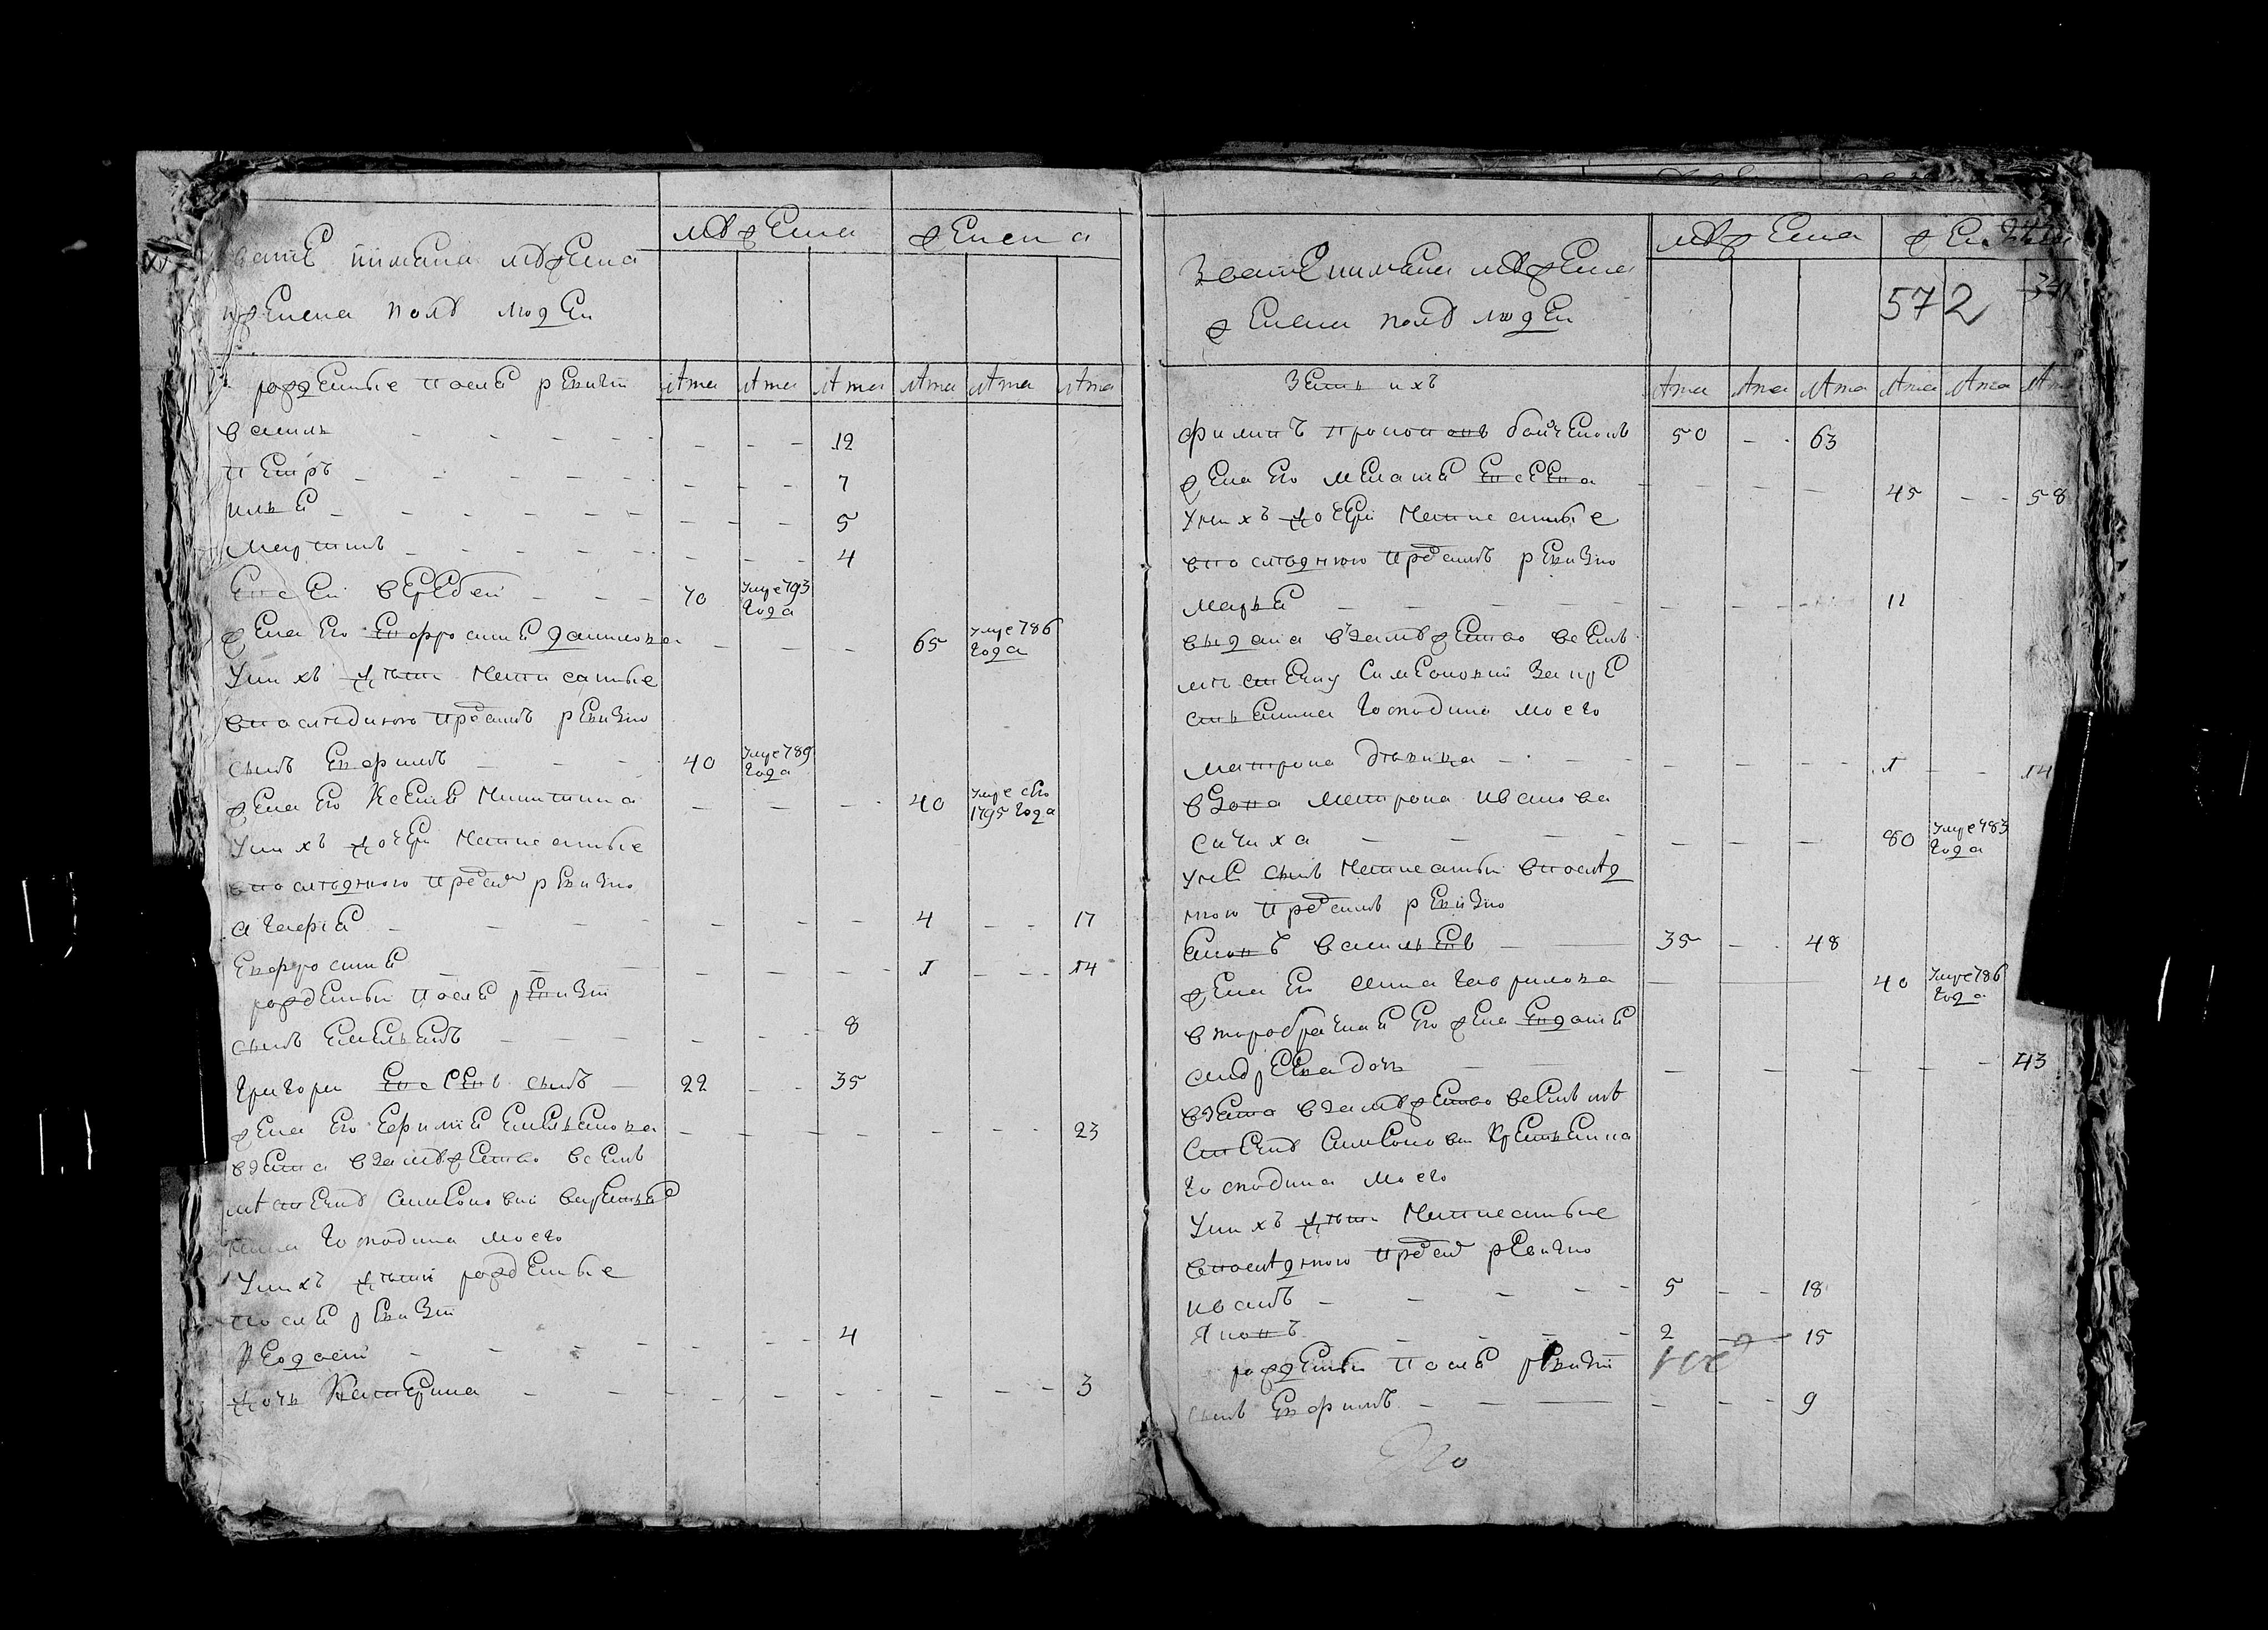 звание имяна мужеска
и женска полу людей
мужеска
женска
рожденные после ревизии
лета лета лета лета лета лета
василь - - - - - - - 12
петръ - - - - - - - 7
илья - - - - - - - 5
мартинъ - - - - - - 4
евсей - - - 70 умре 793 года
жена его евфросиния данилова - - - 65 умре 786 года
у нихъ дети написанные
в последнюю пред симъ ревизию
сынъ евфимъ - - - 40 умре 789 года
жена его ксения никитина - - - 40 умре его 1795 года
у нихъ дочери написанные
в последнюю пред сим ревизию
агафия - - - - - - 4 - - 17
евфросиния - - - - - 1 - - 14
рожденный после ревизии
сынъ емельянъ - - - - - 8
григори евсеевъ сынъ - 22 - - 35
жена его ефимия емельянова - - - - - - 23
взята в замужество в семъ
местечку симоновки
господина моего
у нихъ дети рожденные
после ревизии
феодосий - - - - - - 4
дочь катерина - - - - - - - - 3
звание имяна мужеска
женска полу людей
мужеска
572
лета лета лета лета лета
зять ихъ
филипъ прокоповъ 50 - - 63
жена его мелания евсеева - - - - 45 - - 58
у нихъ дочери написанные
в последнюю пред симъ ревизию
марья - - - - - - 11
выдана в замужество в семъ
местечку
господина моего
матрона - - - - - - 1 - - 14
вдова матрона иванова
- - - - - - 80 умре 783 года
у нея сынъ написанный в послед
нюю пред симъ ревизию
василь евъ - 35 - - 48
жена его анна гаврилова - 40 умре 786 года
второбрачная его жена евдокия
андреева дочь - - - - - - 43
взята в замужество в семъ ме
стечку симоновки крестьянина
господина моего
у нихъ дети написанные
в последнюю пред сим ревизию
иванъ - - - - - 5 - - 18
2 15
рожденный после ревизии
сынъ евфимъ - - - - - - 9